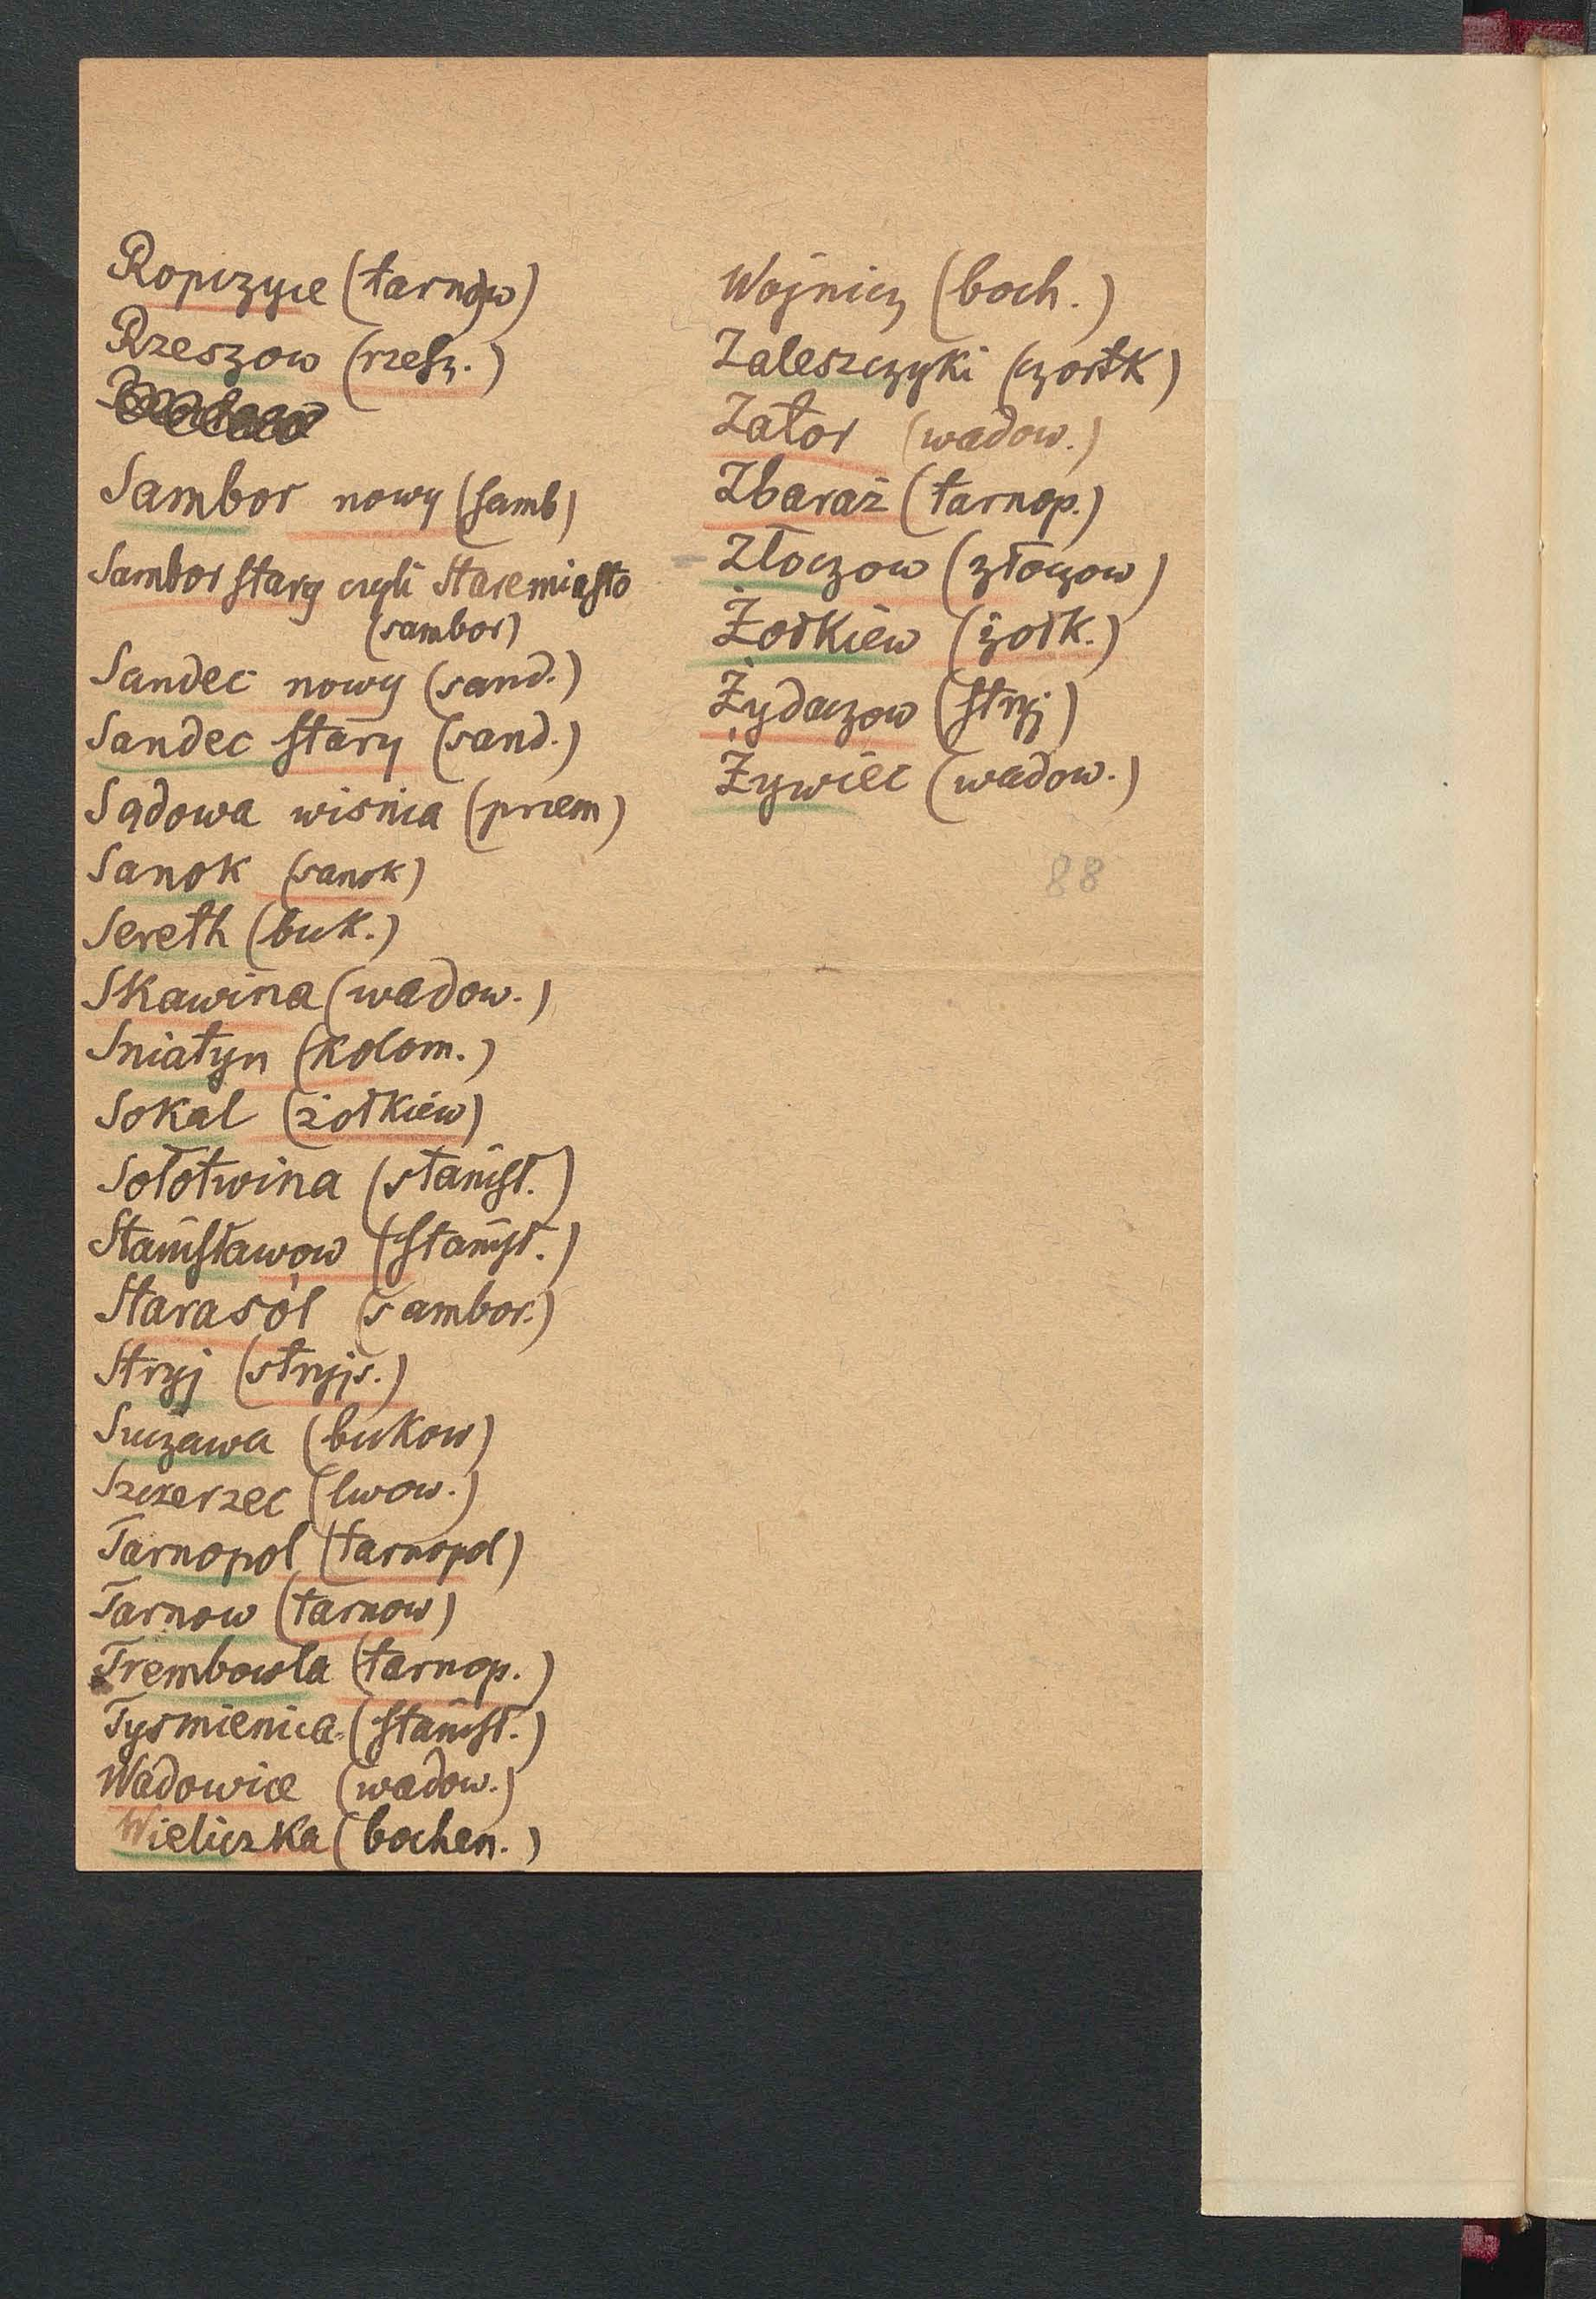 Ropczyce (tarnow)
Rzeszow (rzesz.)
Sambor nowy (samb)
Sambor stary czyli Staremiasto
(sambor)
Sandec nowy (sand.)
Sandec stary (sand.)
Sądowa wisnia (przem)
Sanok (sanok)
Sereth (buk.)
Skawina (wadow.)
Sniatyn (kolom.)
Sokal (żołkiew)
Sołotwina (stanisł.)
Stanisławow (stanisł.)
Starasól (sambor.)
Stryj (stryjs.)
Suczawa (bukow)
Szczerzec (lwow.)
Tarnopol (tarnopol)
Tarnow (tarnow)
Trembowla (tarnop.)
Tysmienica (stanisł.)
Wadowice (wadow.)
Wieliczka (bochen.)
Wojnicz (boch.)
Zaleszczyki (czortk)
Zator (wadow.)
Zbaraż (tarnop.)
Złoczow (złoczow)
Żołkiew (żołk.)
Żydaczow (stryj)
Żywiec (wadow.)
88